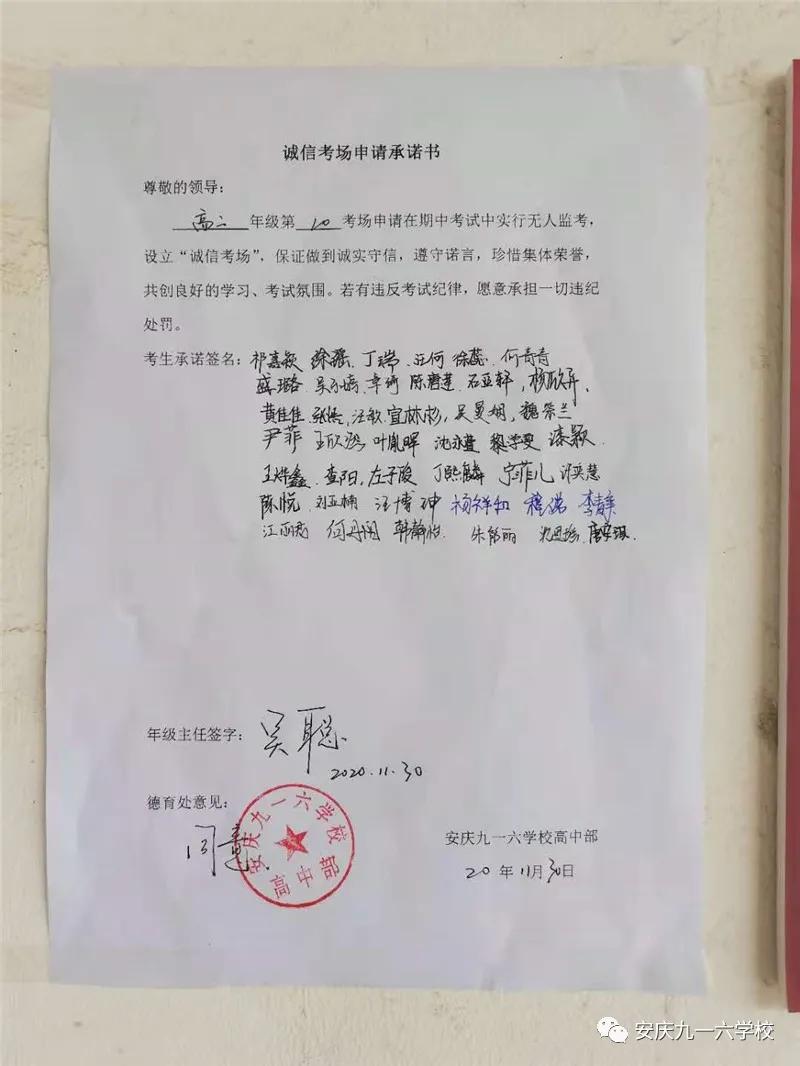 诚信考场申请承诺书
尊敬的领导：
高二年级第10考场申请在期中考试中实行无人监考，
设立“诚信考场”，保证做到诚实守信，遵守诺言，珍惜集体荣誉，
共创良好的学习、考试氛围。若有违反考试纪律，愿意承担一切违纪
处罚。
考生承诺签名：祁嘉颖 徐瑶 丁瑞 汪何 徐蕊 何奇奇
盛璐 陈唐莲 石亚轩
黄佳佳 汪敏 宣林杉 吴曼娟 魏紫兰
尹菲 叶胤晖 漆颖
王烨鑫 查阳 左子酸 丁熙麟 宁菲儿 许英慧
陈悦 刘亚楠 汪博珅 杨祥和 程偌 李靖
何丹闲 韩静怡 朱郁丽
年级主任签字：吴聪
2020.11.30
德育处意见：
同意
安庆九一六学校
高中部
安庆九一六学校高中部
20年11月30日
安庆九一六学校